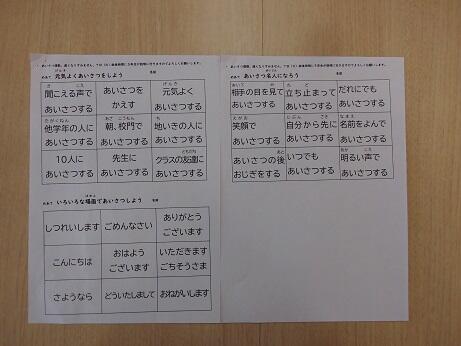 めあて 元気よくあいさつをしよう 名前
聞こえる声で
あいさつする
あいさつを
かえす
元気よく
あいさつする
他学年の人に
あいさつする
朝、校門で
あいさつする
地いきの人に
あいさつする
10人に
あいさつする
先生に
あいさつする
クラスの友達に
あいさつする
めあて いろいろな場面であいさつしよう 名前
しつれいします
ごめんなさい
ありがとう
ございます
こんにちは
おはよう
ございます
いただきます
ごちそうさま
さようなら
どういたしまして
おねがいします
めあて あいさつ名人になろう 名前
相手の目を見て
あいさつする
立ち止まって
あいさつする
だれにでも
あいさつする
笑顔で
あいさつする
自分から先に
あいさつする
名前をよんで
あいさつする
あいさつの後
おじぎをする
いつでも
あいさつする
明るい声で
あいさつする